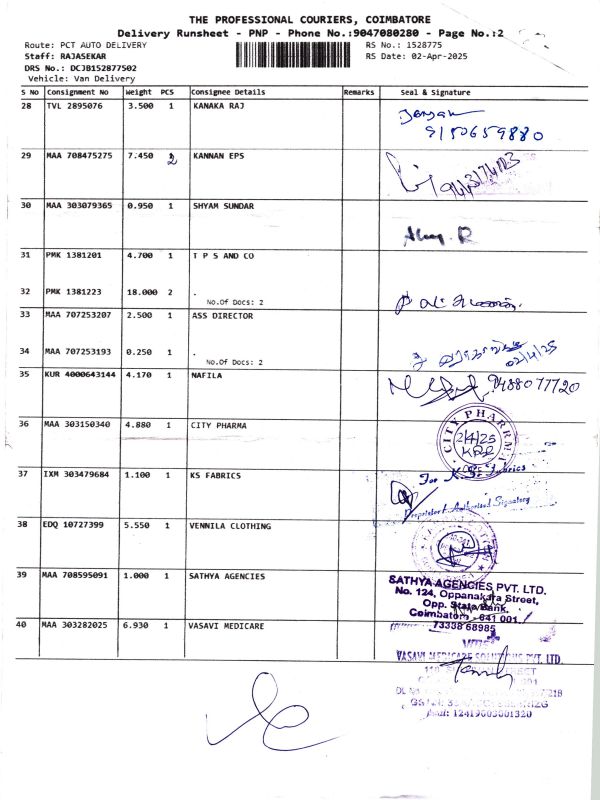 THE PROFESSIONAL COURIERS, COIMBATORE
Delivery Runsheet - PNP - Phone No.:9047080280 - Page No.:2
Route: PCT AUTO DELIVERY RS No.: 1528775
Staff: RAJASEKAR RS Date: 02-Apr-2025
DRS No.: DCJB152877502
Vehicle: Van Delivery
S No Consignment No Weight PCS Consignee Details Remarks Seal & Signature
28 TVL 2895076 3.500 1 KANAKA RAJ
9150659880
29 MAA 708475275 7.450 2 KANNAN EPS
30 MAA 303079365 0.950 1 SHYAM SUNDAR
31 PMK 1381201 4.700 1 T P S AND CO
32 PMK 1381223 18.000 2 .
No.Of Docs: 2
33 MAA 707253207 2.500 1 ASS DIRECTOR
34 MAA 707253193 0.250 1 .
No.Of Docs: 2
02/4/25
35 KUR 4000643144 4.170 1 NAFILA
9488077720
36 MAA 303150340 4.880 1 CITY PHARMA
CITY PHARMA
2/4/25
37 IXM 303479684 1.100 1 KS FABRICS
For K.S. Fabrics
Proprietor / Authorised Signatory
38 EDQ 10727399 5.550 1 VENNILA CLOTHING
39 MAA 708595091 1.000 1 SATHYA AGENCIES
SATHYA AGENCIES PVT. LTD.
No. 124, Oppanakara Street,
Opp. State Bank,
Coimbatore - 641 001
73338 68985
40 MAA 303282025 6.930 1 VASAVI MEDICARE
VASAVI MEDICARE SOLUTIONS PVT. LTD.